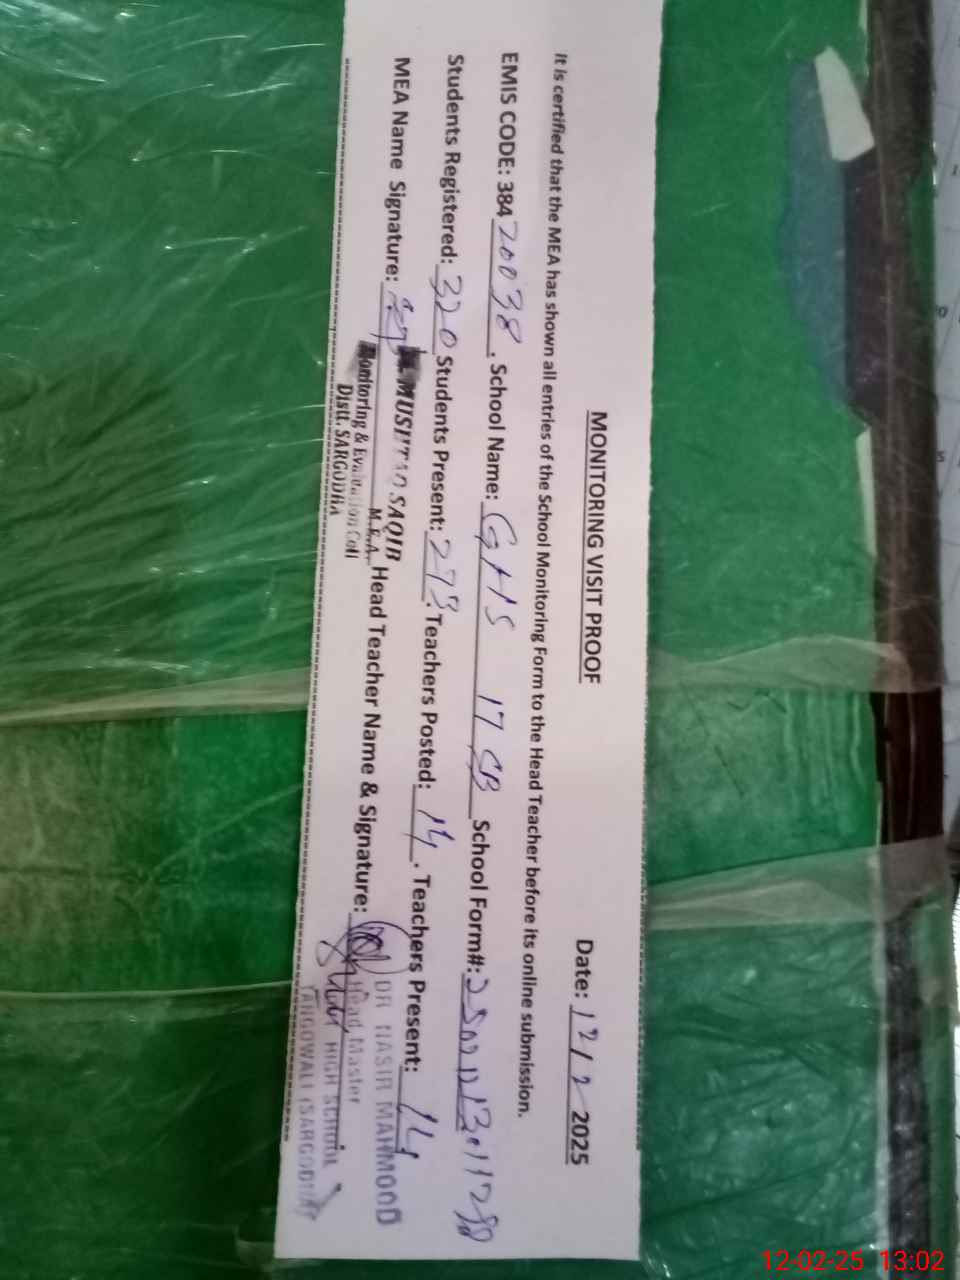 MONITORING VISIT PROOF
Date: 12/2 2025
It is certified that the MEA has shown all entries of the School Monitoring Form to the Head Teacher before its online submission.
EMIS CODE: 38420038. School Name: GHS 17 SB School Form#:
Students Registered: 320 Students Present: 273. Teachers Posted: 14. Teachers Present: 14
MEA Name Signature: Head Teacher Name & Signature:
MUSHTAQ SAQIB
M.E.A.
Monitoring & Evaluation Cell
Distt. SARGODHA
DR NASIR MAHMOOD
Head Master
HIGH SCHOOL
(SARGODHA)
12-02-25 13:02